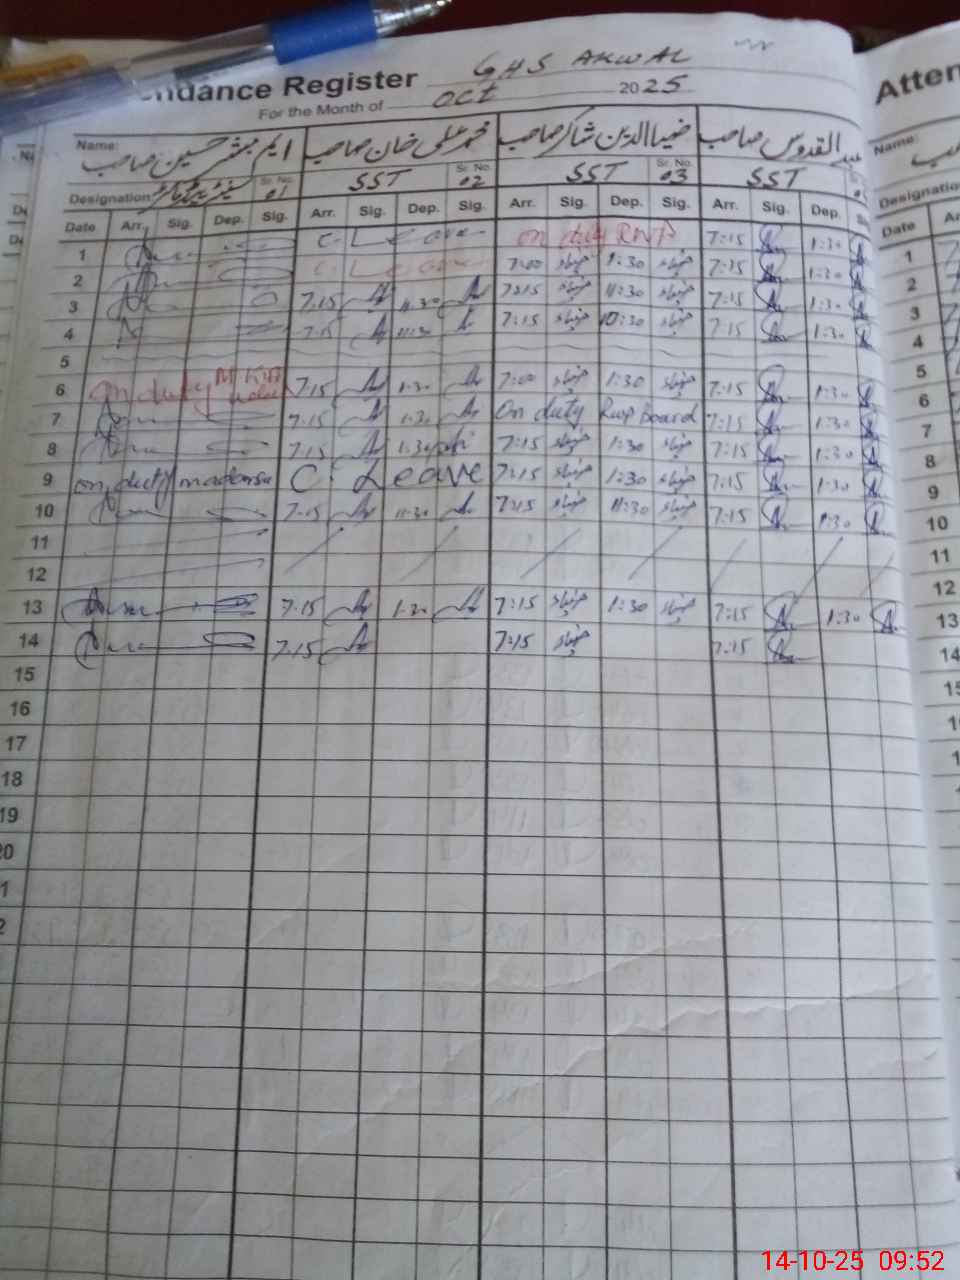 Attendance Register GHS AKWAL
For the Month of OCT 2025
Name: ایم مبشر حسین صاحب محمد علی خان صاحب ضیاالدین شاکر صاحب عبدالقدوس صاحب
Designation: Sr. No. 01 SST Sr. No. 02 SST Sr. No. 03 SST
Date Arr. Sig. Dep. Sig. Arr. Sig. Dep. Sig. Arr. Sig. Dep. Sig. Arr. Sig. Dep.
1 C. Leave on duty RWP 7:15 1:30
2 C. Leave 7:00 ضیاء 1:30 ضیاء 7:15 1:30
3 7.15 11.30 7:15 ضیاء 11:30 ضیاء 7:15 1:30
4 7.15 11:30 7:15 ضیاء 10:30 ضیاء 7:15 1:30
5
6 on duty 7.15 1.30 7:00 ضیاء 1:30 ضیاء 7:15 1:30
7 7.15 1.30 On duty Rwp Board 7:15 1:30
8 7.15 1.30 7:15 ضیاء 1:30 ضیاء 7:15 1:30
9 on duty madarsa C. Leave 7:15 ضیاء 1:30 ضیاء 7:15 1:30
10 7.15 11.30 7:15 ضیاء 11:30 ضیاء 7:15 1:30
11
12
13 7.15 1.30 7:15 ضیاء 1:30 ضیاء 7:15 1:30
14 7.15 7:15 ضیاء 7:15
15
16
17
18
19
20
Atten
Name:
Designation
Date
1
2
3
4
5
6
7
8
9
10
11
12
13
14
15
14-10-25 09:52